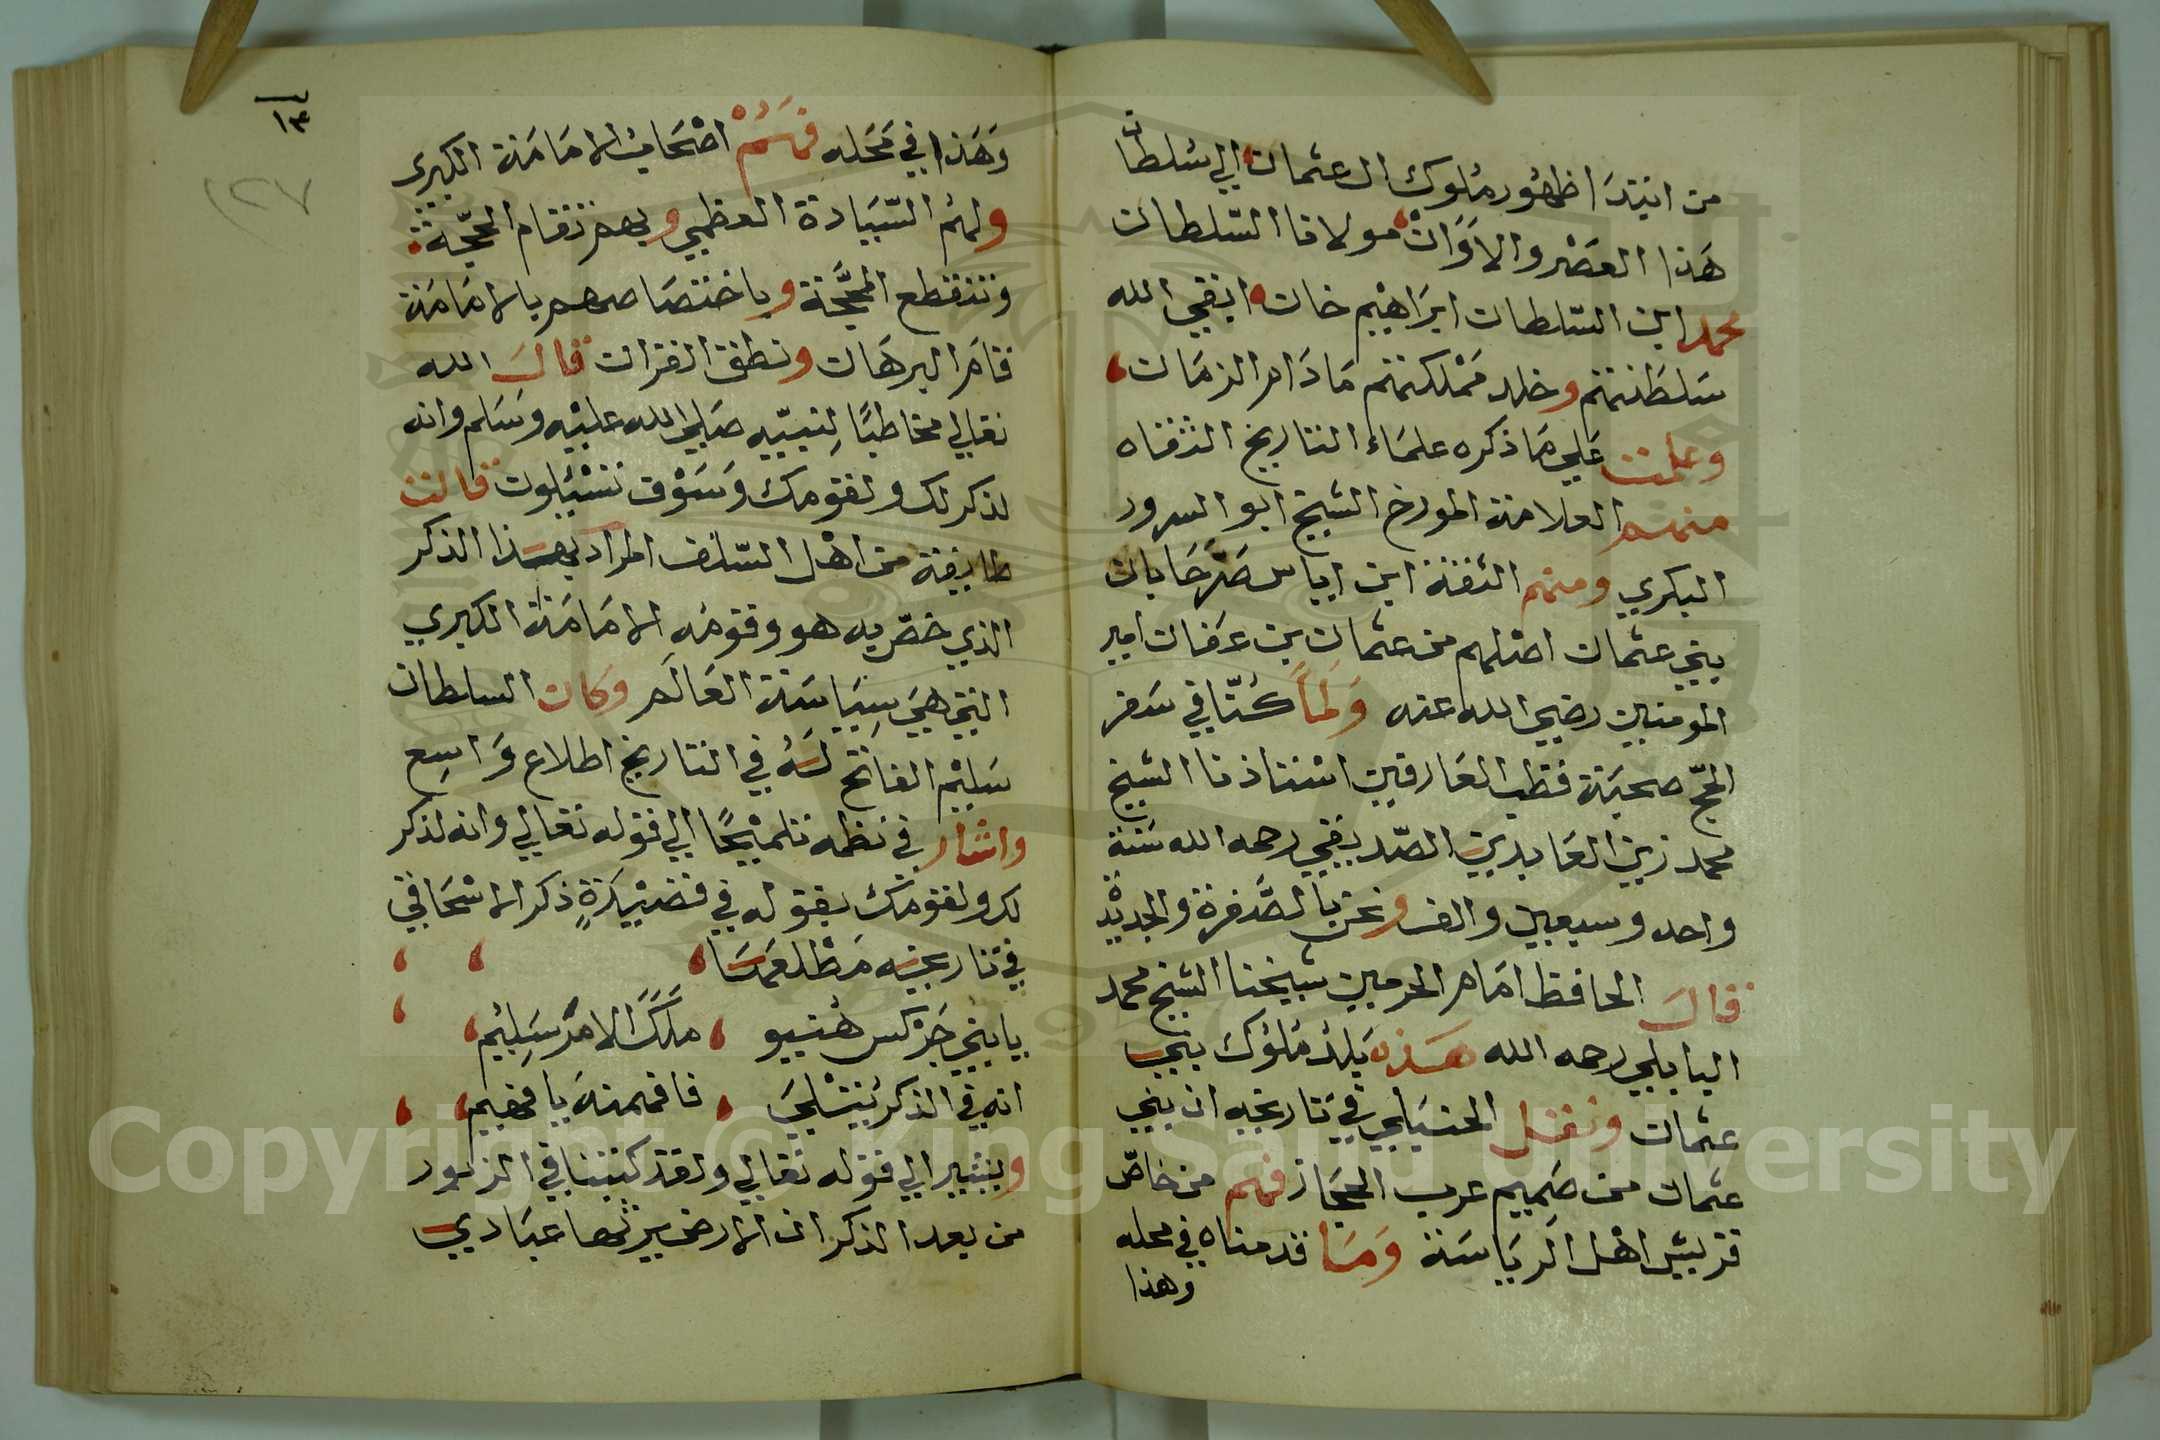 من ابتدا ظهور ملوك ال عثمان الي سلطان
هذا العصر والاوان مولانا السلطان
محمد ابن السلطان ابراهيم خان ابقي الله
سلطنتهم وخلد مملكتهم مادام الزمان
وعلمت علي ما ذكره علماء التاريخ الثقاه
منهم العلامة المورخ الشيخ ابو السرور
البكري ومنهم الثقة ابن اياس صرحا بان
بني عثمان اصلهم من عثمان بن عفان امير
المومنين رضي الله عنه ولما كنا في سفر
الحج صحبة قطب العارفين استاذنا الشيخ
محمد زين العابدين الصديقي رحمه الله سنة
واحد وسبعين والف ونحن بالصفرة والجديدة
قال الحافظ امام الحرمين شيخنا الشيخ محمد
البابلي رحمه الله هذه بلد ملوك بني
عثمان ونقل الحنبلي في تاريخه ان بني
عثمان من صميم عرب الحجاز فهم من خاص
قريش اهل الرياسة وما قدمناه في محله
وهذا
١٣
١٢٧
وهذا في محله فهم اصحاب الامامة الكبري
ولهم السيادة العظمي وبهم تقام الحجة
وتنقطع المحجة وباختصاصهم بالامامة
قام البرهان ونطق القران قال الله
تعالي مخاطبا لنبيه صلي الله عليه وسلم وانه
لذكر لك ولقومك وسوف تسئلون قالت
طايفة من اهل السلف المراد بهذا الذكر
الذي خص به هو وقومه الامامة الكبري
التي هي سياسة العالم وكان السلطان
سليم الفاتح له في التاريخ اطلاع واسع
واشار في نظمه تلميحا الي قوله تعالي وانه لذكر
لك ولقومك بقوله في قصيدة ذكر الاسحاقي
في تاريخه مطلعها
يا بني جركس هنيو ملك الامر سليم
انه في الذكر يتلي فافهمنه يا فهيم
ويشير الي قوله تعالي ولقد كتبنا في الزبور
من بعد الذكر ان الارض يرثها عبادي
Copyright © King Saud University